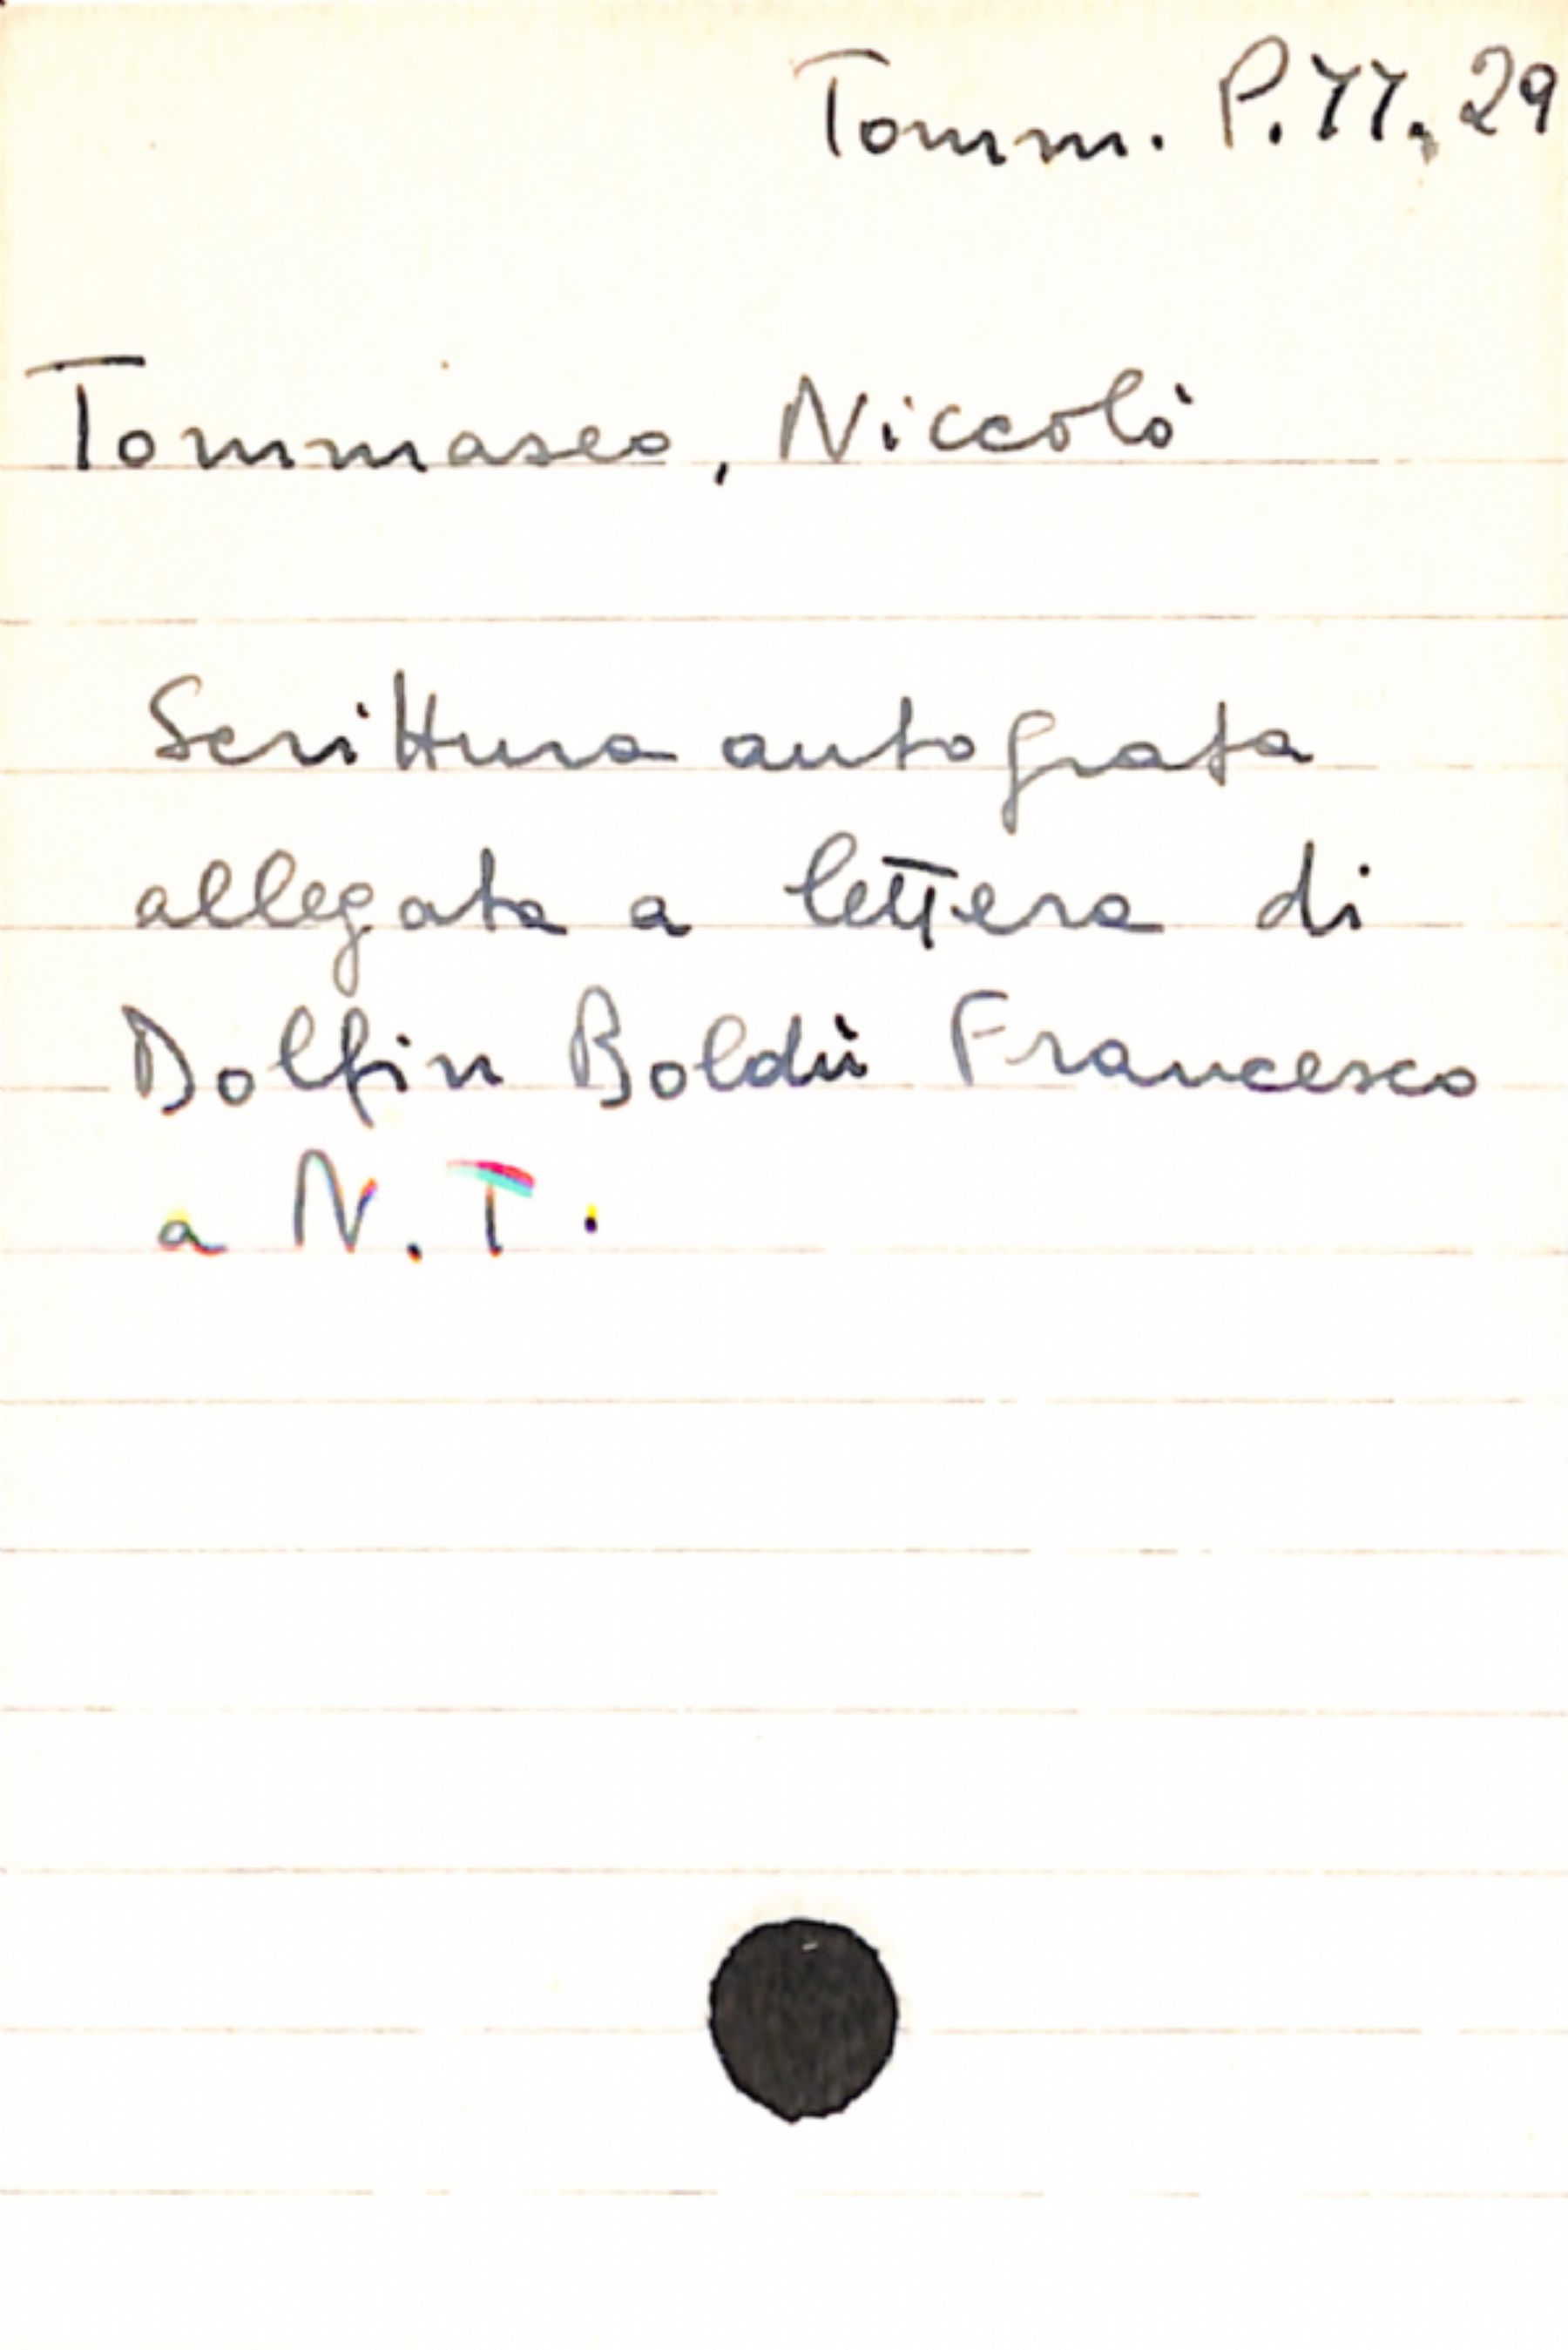 Tomm. P.77, 29
Tommaseo, Niccolò
Scrittura autografa
allegata a lettera di
Dolfin Boldù Francesco
a N.T.